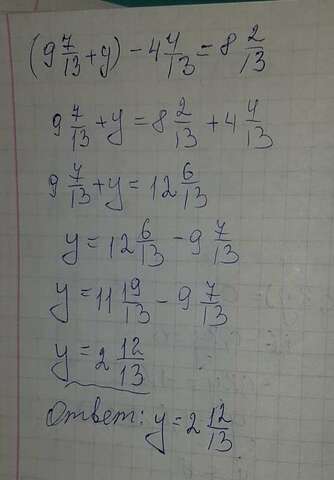 (9 7/13 + y) - 4 4/13 = 8 2/13
9 7/13 + y = 8 2/13 + 4 4/13
9 7/13 + y = 12 6/13
y = 12 6/13 - 9 7/13
y = 11 19/13 - 9 7/13
y = 2 12/13
Ответ: y = 2 12/13